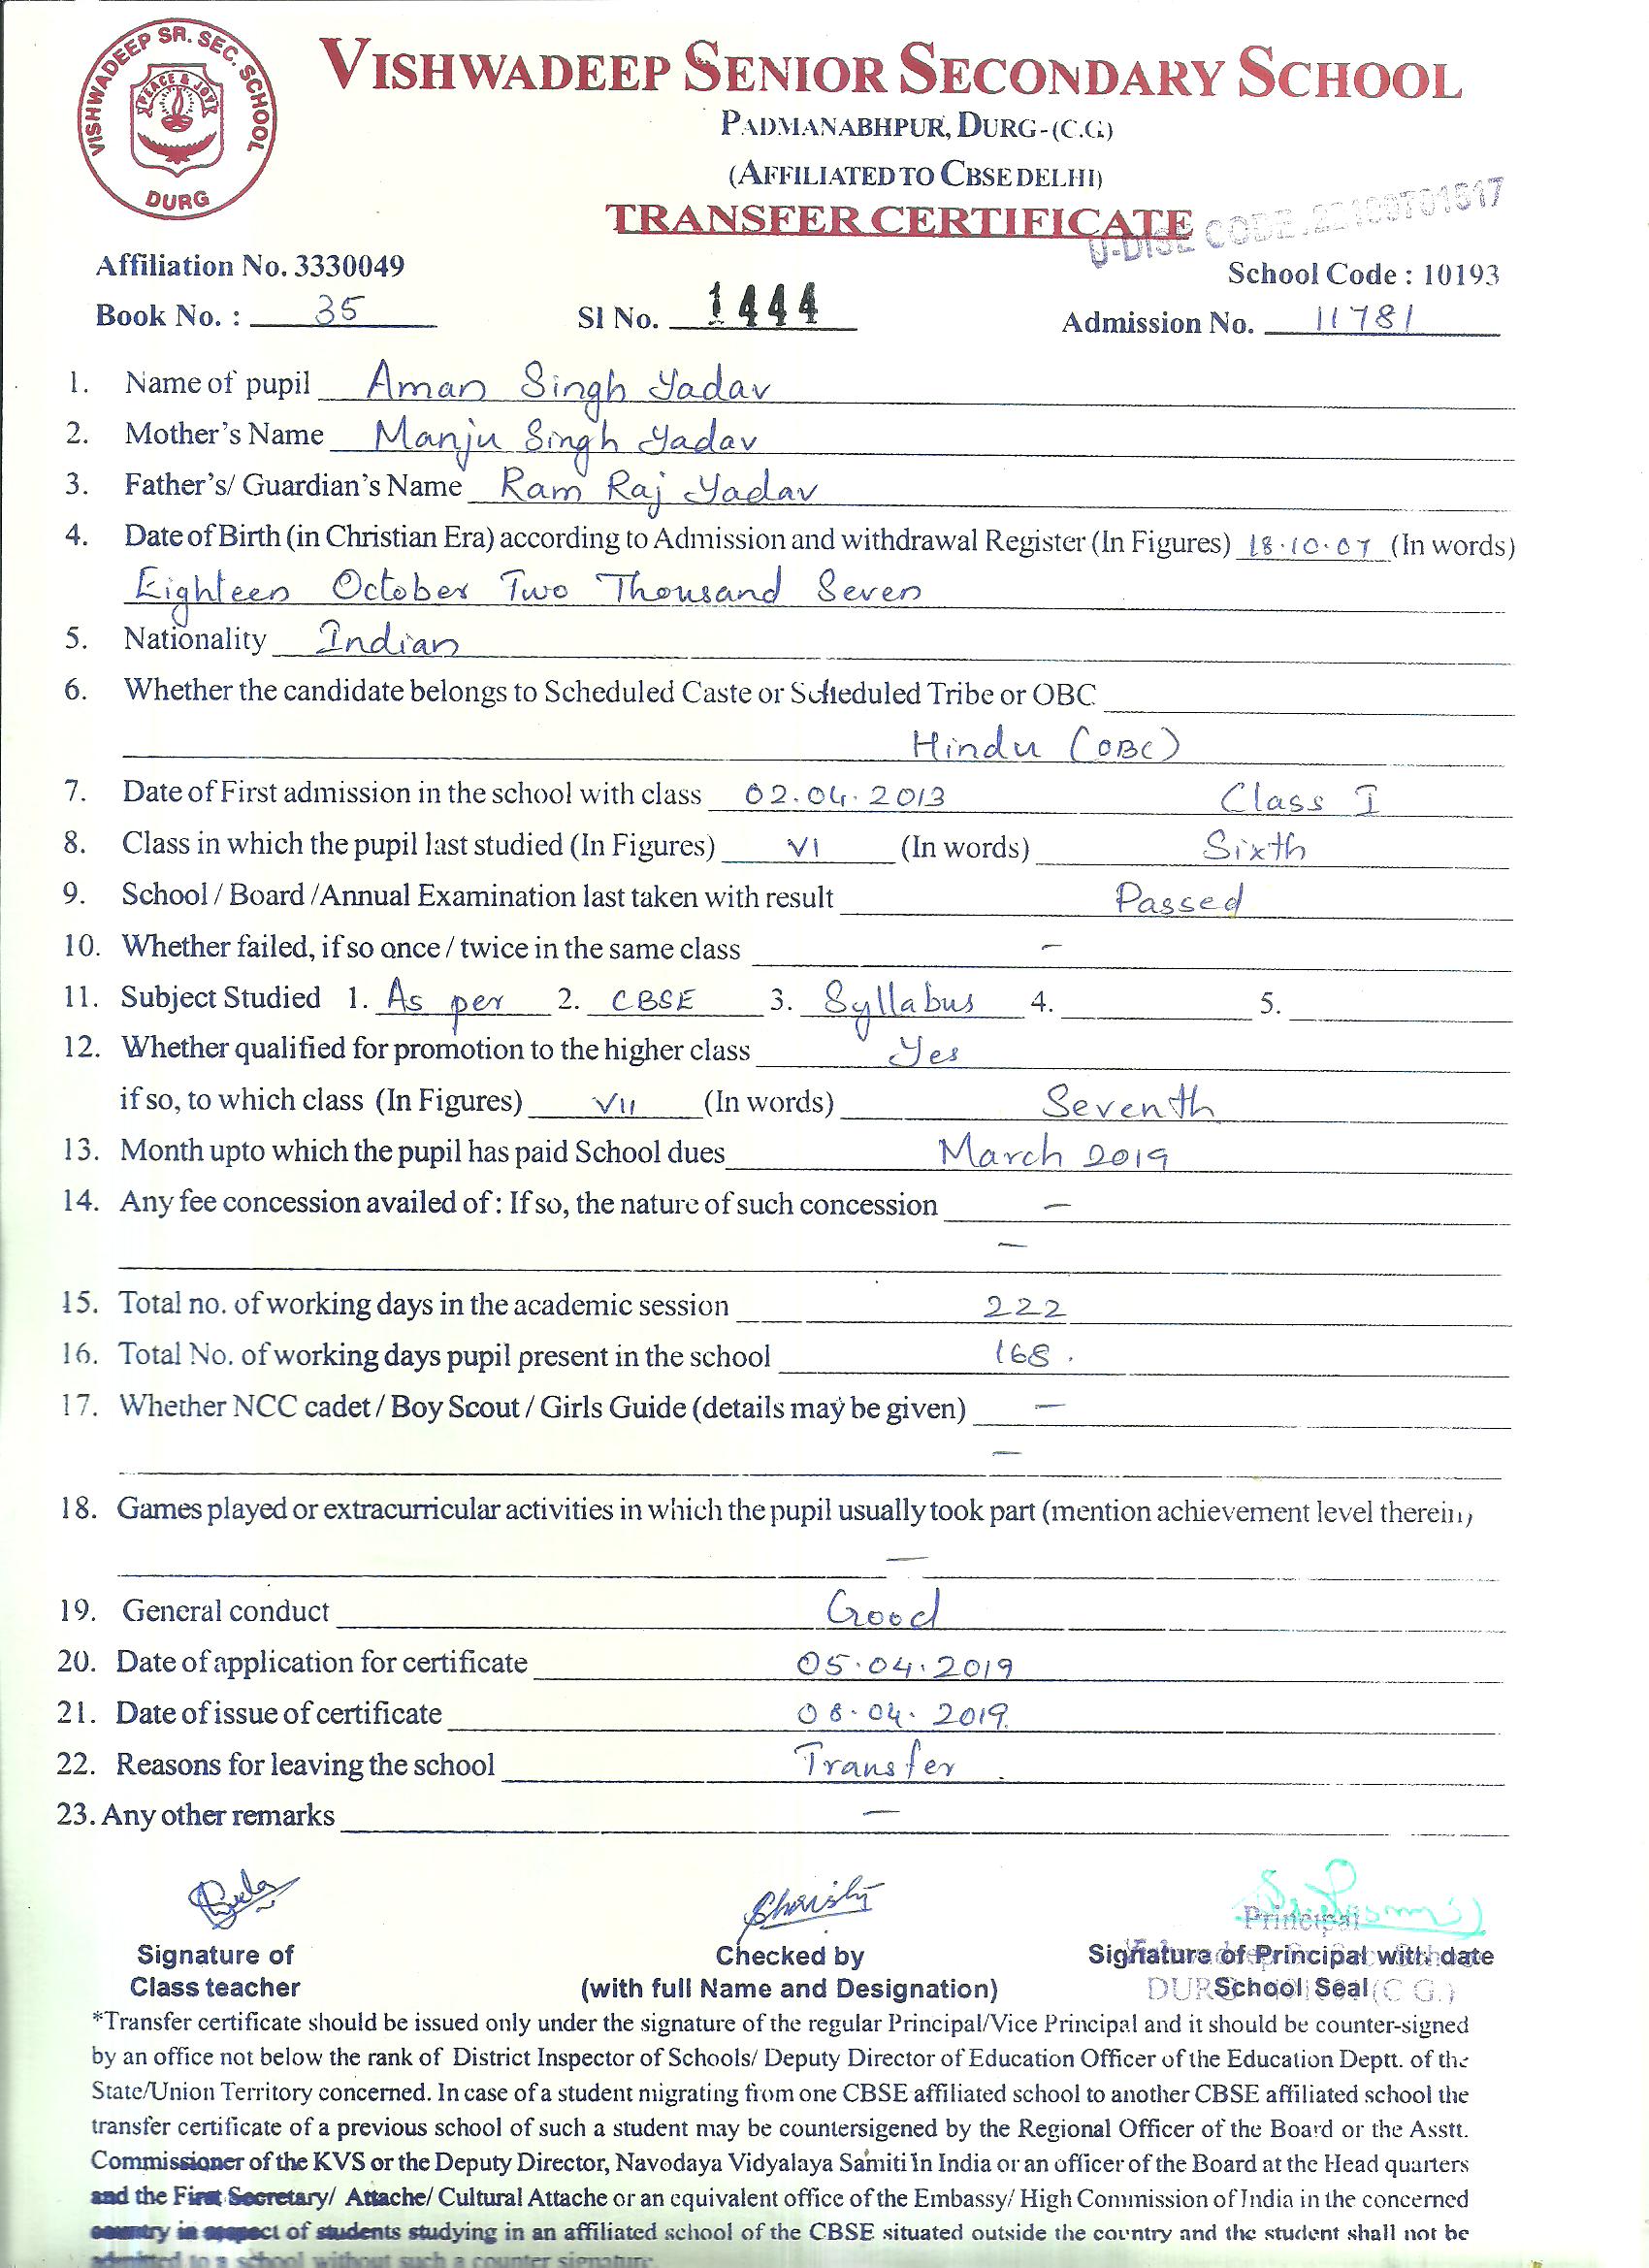 VISHWADEEP SR. SEC. SCHOOL
PEACE & JOY
DURG
VISHWADEEP SENIOR SECONDARY SCHOOL
PADMANABHPUR, DURG-(C.G.)
(AFFILIATED TO CBSE DELHI)
TRANSFER CERTIFICATE
U-DISE CODE.22100701517
Affiliation No. 3330049 School Code : 10193
Book No. : 35 Sl No. 1444 Admission No. 11781
1. Name of pupil Aman Singh Yadav
2. Mother's Name Manju Singh Yadav
3. Father's/ Guardian's Name Ram Raj Yadav
4. Date of Birth (in Christian Era) according to Admission and withdrawal Register (In Figures) 18.10.07 (In words)
Eighteen October Two Thousand Seven
5. Nationality Indian
6. Whether the candidate belongs to Scheduled Caste or Scheduled Tribe or OBC
Hindu (OBC)
7. Date of First admission in the school with class 02.04.2013 Class I
8. Class in which the pupil last studied (In Figures) VI (In words) Sixth
9. School / Board /Annual Examination last taken with result Passed
10. Whether failed, if so once / twice in the same class –
11. Subject Studied 1. As per 2. CBSE 3. Syllabus 4. 5.
12. Whether qualified for promotion to the higher class Yes
if so, to which class (In Figures) VII (In words) Seventh
13. Month upto which the pupil has paid School dues March 2019
14. Any fee concession availed of : If so, the nature of such concession –
–
15. Total no. of working days in the academic session 222
16. Total No. of working days pupil present in the school 168.
17. Whether NCC cadet / Boy Scout / Girls Guide (details may be given) –
–
18. Games played or extracurricular activities in which the pupil usually took part (mention achievement level therein)
–
19. General conduct Good
20. Date of application for certificate 05.04.2019
21. Date of issue of certificate 08.04.2019
22. Reasons for leaving the school Transfer
23. Any other remarks –
Principal
Signature of Checked by Signature of Principal with date
Class teacher (with full Name and Designation) School Seal
DURG (C G.)
*Transfer certificate should be issued only under the signature of the regular Principal/Vice Principal and it should be counter-signed
by an office not below the rank of District Inspector of Schools/ Deputy Director of Education Officer of the Education Deptt. of the
State/Union Territory concerned. In case of a student migrating from one CBSE affiliated school to another CBSE affiliated school the
transfer certificate of a previous school of such a student may be countersigened by the Regional Officer of the Board or the Asstt.
Commissioner of the KVS or the Deputy Director, Navodaya Vidyalaya Samiti in India or an officer of the Board at the Head quarters
and the First Secretary/ Attache/ Cultural Attache or an equivalent office of the Embassy/ High Commission of India in the concerned
country in respect of students studying in an affiliated school of the CBSE situated outside the country and the student shall not be
admitted to a school without such a counter signature.